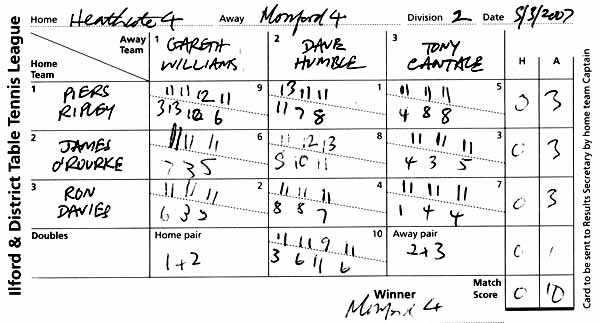 Ilford & District Table Tennis League
Home Heathcote 4 Away Monford 4 Division 2 Date 5/3/2007
Away Team
Home Team
1 GARETH WILLIAMS
2 DAVE HUMBLE
3 TONY CANTALE
H A
1 PIERS RIPLEY
9
11 11 12 11
3 13 10 6
1
13 11 11
11 7 8
5
11 11 11
4 8 8
0 3
2 JAMES O'ROURKE
6
11 11 11
7 3 5
8
11 12 13
5 10 11
3
11 11 11
4 3 5
0 3
3 RON DAVIES
2
11 11 11
6 3 5
4
11 11 11
8 8 7
7
11 11 11
1 4 4
0 3
Doubles
Home pair
1+2
10
11 11 9 11
3 6 11 6
Away pair
2+3
0 1
Winner Monford 4
Match Score
0 10
Card to be sent to Results Secretary by home team Captain